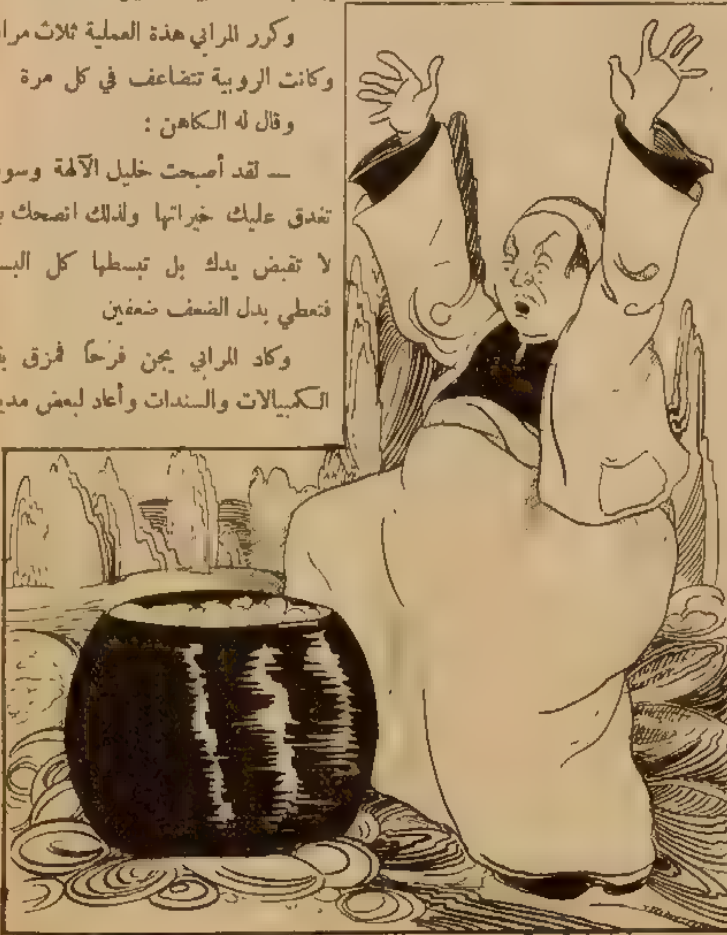 وكرر المرابي هذه العملية ثلاث
وكانت الروبية تتضاعف في كل مرة
وقال له الكاهن :
— لقد أصبحت خليل الآلهة
تغدق عليك خيراتها ولذلك انصحك
لا تقبض يدك بل تبسطها كل
فتعطي بدل الضعف ضعفين
وكاد المرابي يجن فرحاً فمزق
الكمبيالات والسندات وأعاد لبعض